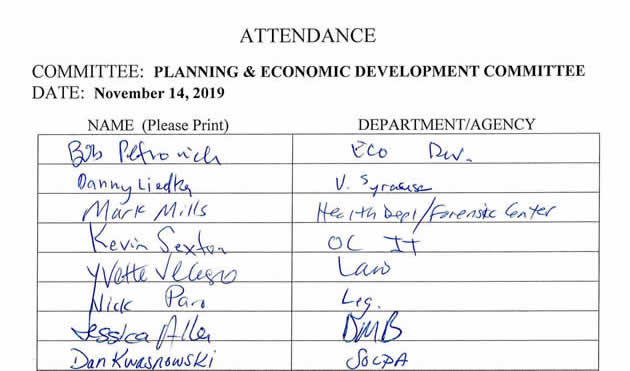 ATTENDANCE
COMMITTEE: PLANNING & ECONOMIC DEVELOPMENT COMMITTEE
DATE: November 14, 2019
NAME (Please Print) DEPARTMENT/AGENCY
Bob Petrovich Eco Dev.
Danny Liedka V. Syracuse
Mark Mills Health Dept/Forensic Center
Kevin Sexton OC IT
Yvette Velasco Law
Nick Paro Leg.
Jessica Allen DMB
Dan Kwasnowski SOCPA